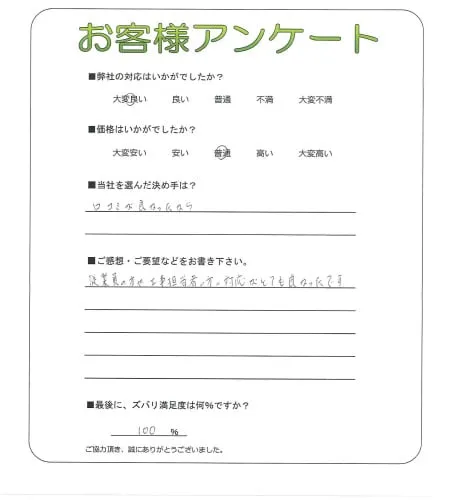 お客様アンケート
■弊社の対応はいかがでしたか？
大変良い 良い 普通 不満 大変不満
■価格はいかがでしたか？
大変安い 安い 普通 高い 大変高い
■当社を選んだ決め手は？
口コミが良かったから
■ご感想・ご要望などをお書き下さい。
従業員の方や工事担当者の方の対応がとても良かったです
■最後に、ズバリ満足度は何%ですか？
100 %
ご協力頂き、誠にありがとうございました。